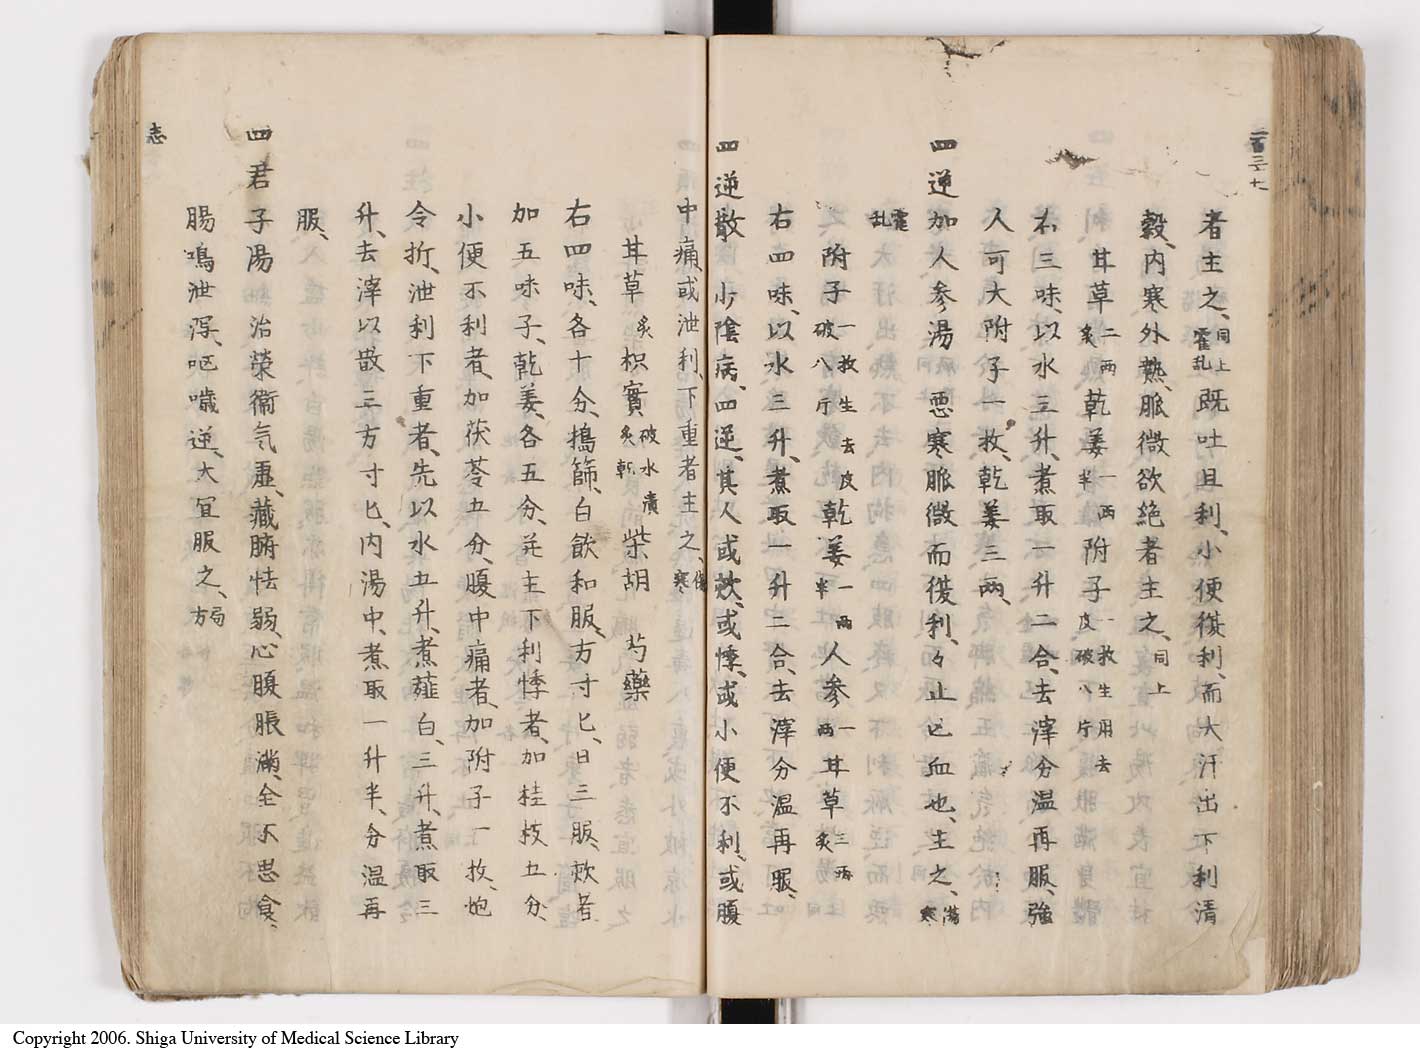 二百三十七
者主之、同上霍乱既吐且利、小便復利、而大汗出下利清
穀、内寒外熱、脈微欲絶者主之、同上
甘草二両炙乾姜一両半附子一枚生用去皮破八片
右三味、以水三升、煮取一升二合、去滓分温再服、強
人可大附子一枚、乾姜三両、
四逆加人参湯 悪寒脈微而復利、々止亡血也、主之、傷寒
霍乱
附子一枚生去皮破八片乾姜一両半人参一両甘草三両炙
右四味、以水三升、煮取一升二合、去滓分温再服、
四逆散 少陰病、四逆、其人或欬、或悸、或小便不利、或腹
中痛、或泄利、下重者主之、傷寒
甘草炙枳實破水漬炙乾柴胡 芍藥
右四味、各十分、搗篩、白飲和服、方寸匕、日三服、欬者
加五味子、乾姜、各五分、并主下利悸者、加桂枝五分、
小便不利者、加茯苓五分、腹中痛者、加附子一枚、炮
令折、泄利下重者、先以水五升、煮薤白、三升、煮取三
升、去滓以散三方寸匕、内湯中、煮取一升半、分温再
服、
四君子湯 治榮衞気虚、藏腑怯弱、心腹脹満、全不思食、
腸鳴泄瀉、嘔噦逆、大宜服之、局方
志
Copyright 2006. Shiga University of Medical Science Library